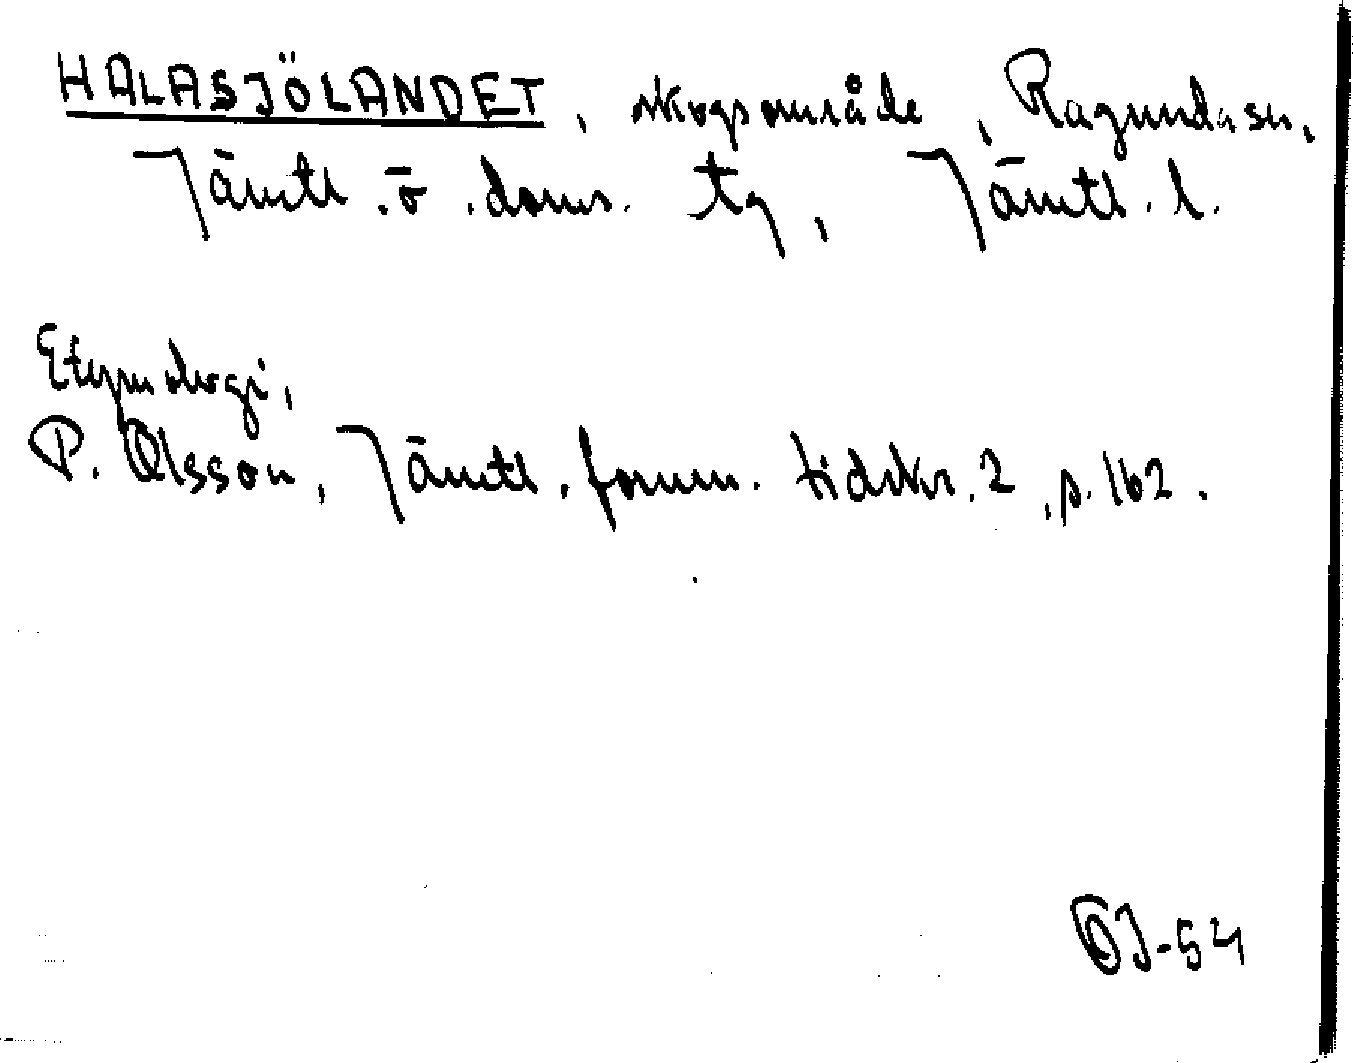 HALASJÖLANDET, skogsområde, Ragunda sn,
Jämtl. ö. doms. tg, Jämtl. l.
Etymologi,
P. Olsson, Jämtl. fornm. tidskr. 2, s. 162.
OJ-54